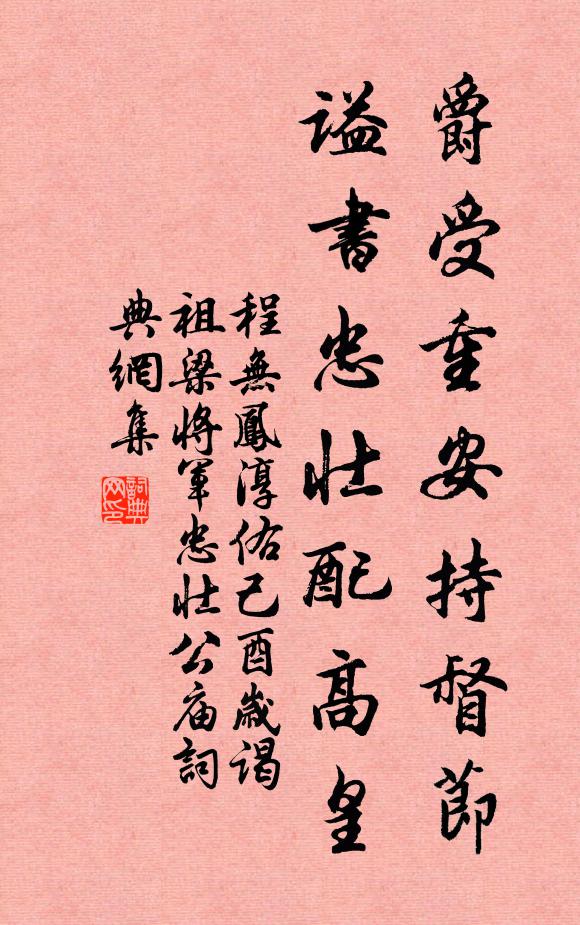 爵受重安持督節
謚書忠壯配高皇
程無鳳淳佑己酉歲谒
祖梁將軍忠壯公庙詞
典網集
詞典网印